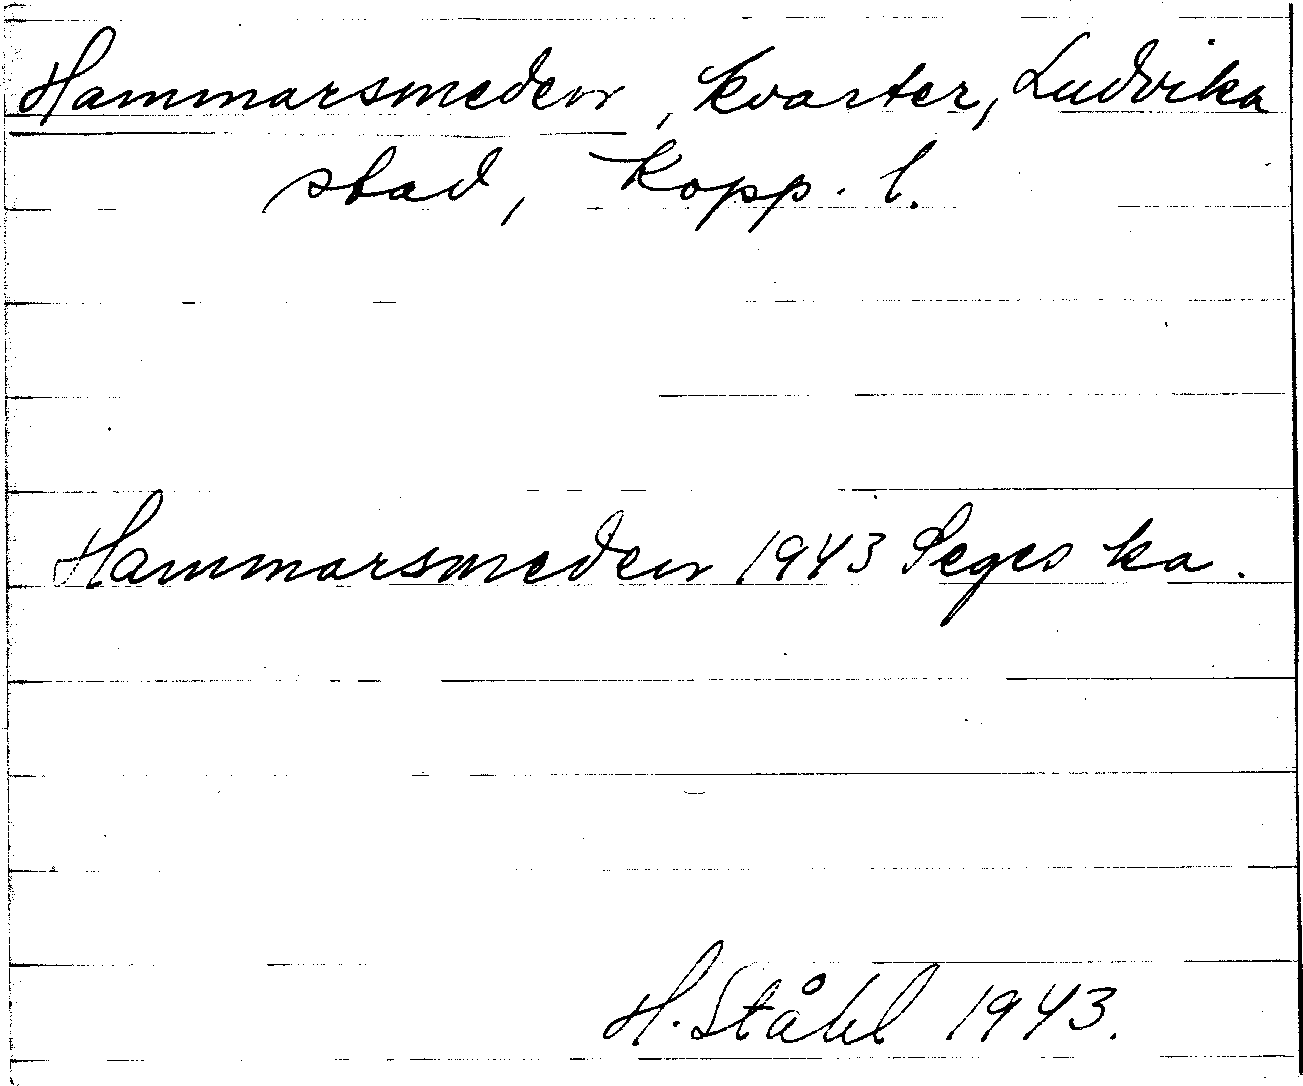 Hammarsmeden, kvarter, Ludvika
stad, Kopp. l.
Hammarsmeden 1943 Seges ka.
H. Ståhl 1943.